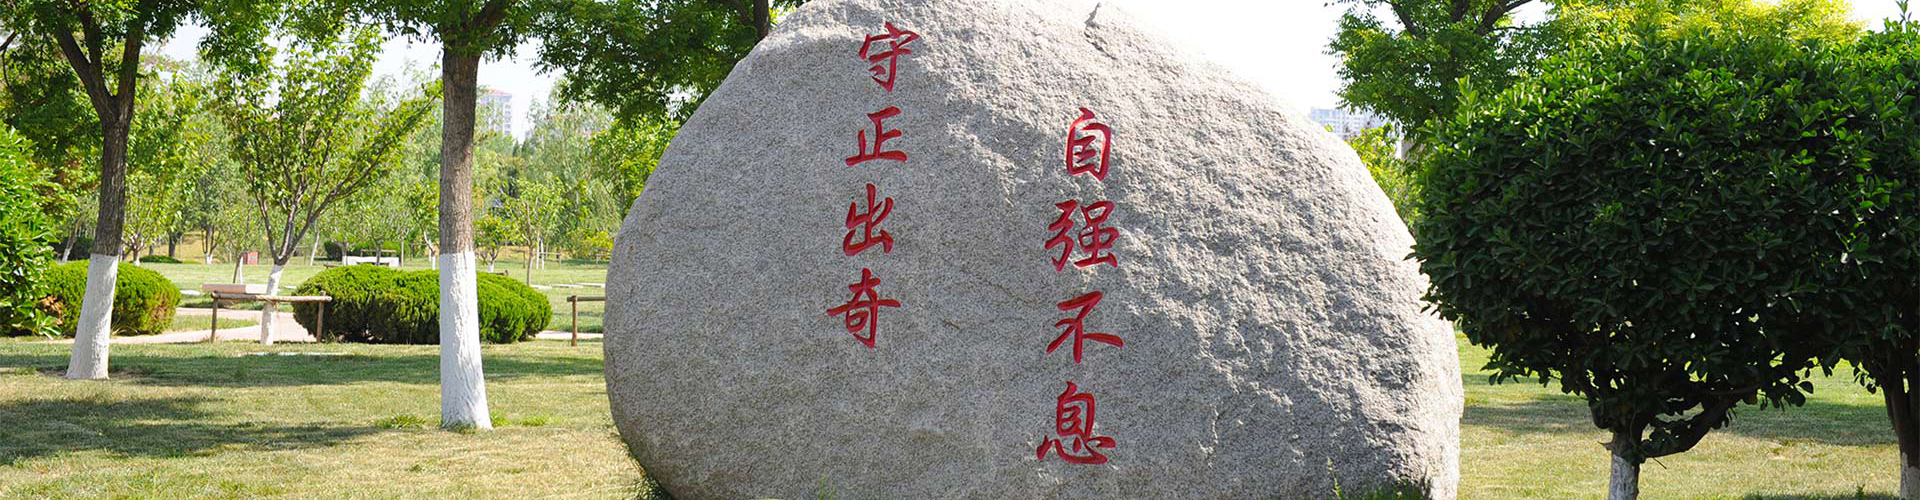 自强不息
守正出奇